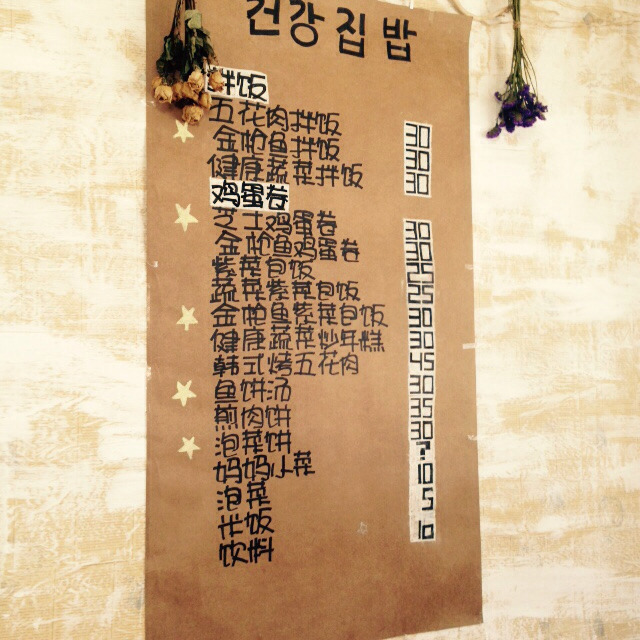 건강집밥
拌饭
五花肉拌饭 30
金枪鱼拌饭 30
健康蔬菜拌饭 30
鸡蛋卷
芝士鸡蛋卷 30
金枪鱼鸡蛋卷 30
紫菜包饭 25
蔬菜紫菜包饭 25
金枪鱼紫菜包饭 30
健康蔬菜炒年糕 30
韩式烤五花肉 45
鱼饼汤 30
煎肉饼 35
泡菜饼 30
妈妈小菜 ?
泡菜 10
米饭 5
饮料 10